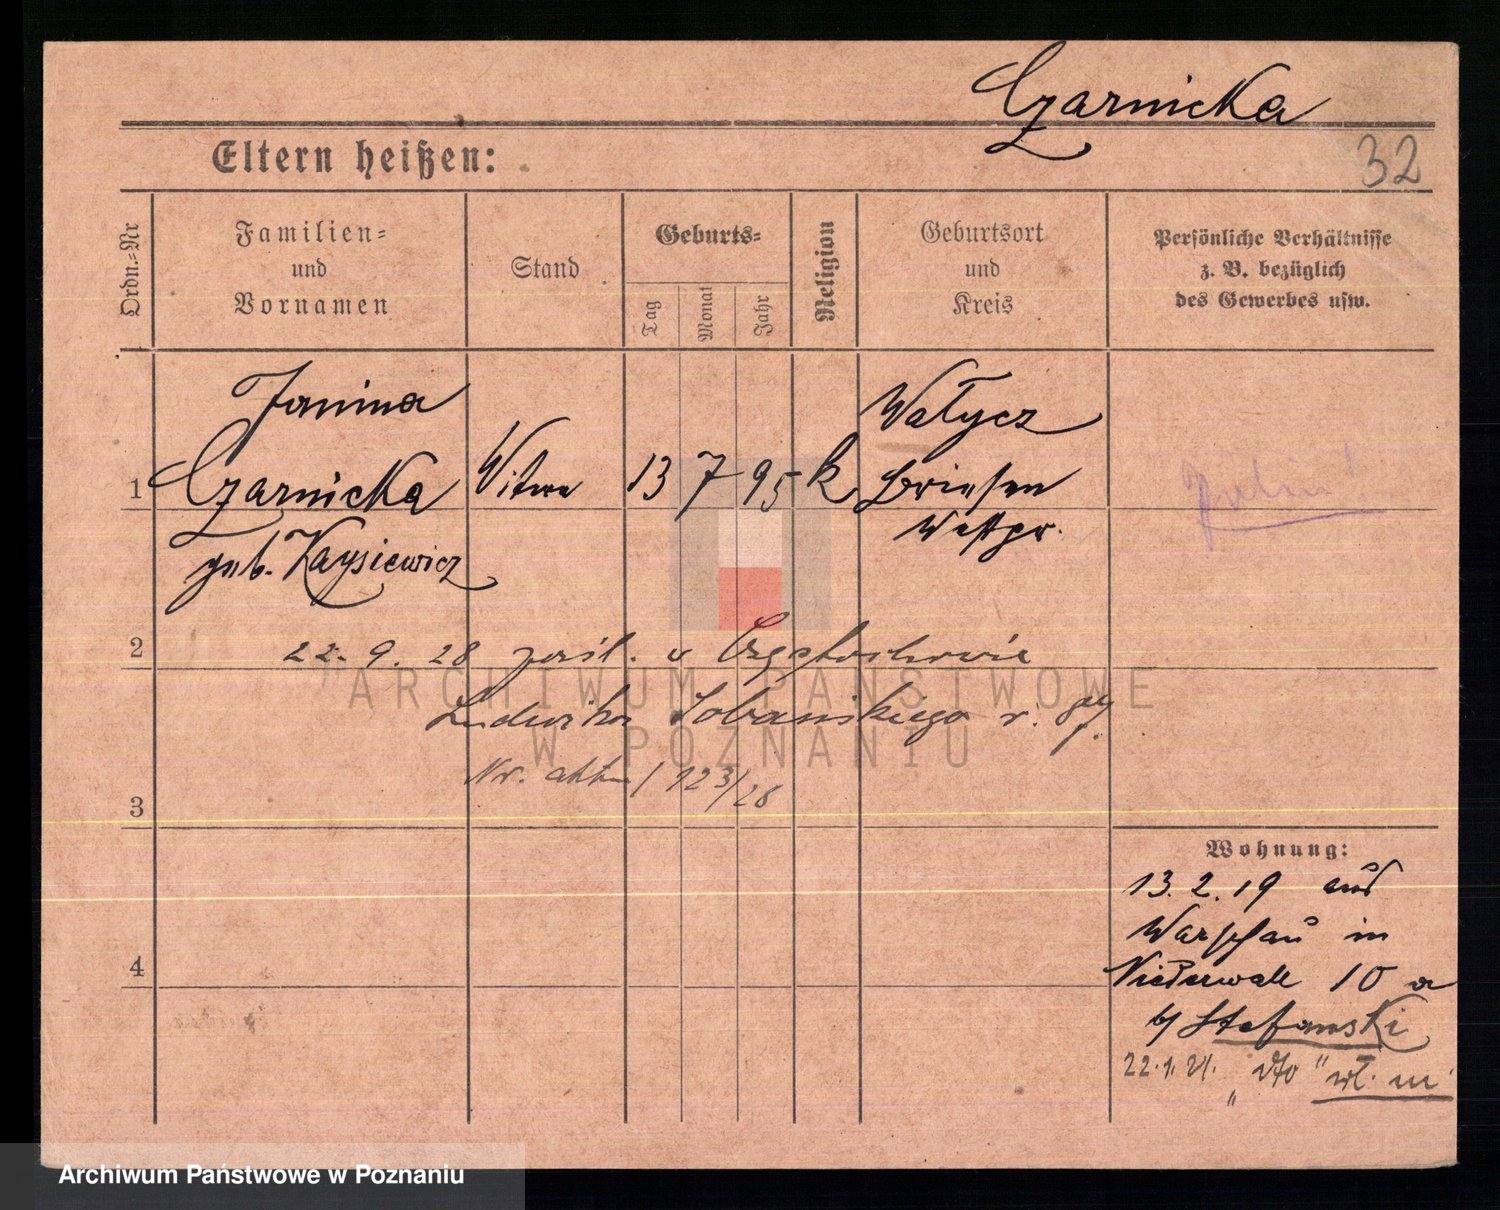 Czarnicka
32
Eltern heißen:
Ordn.-Nr
Familien-
und
Vornamen
Stand
Geburts-
Tag
Monat
Jahr
Religion
Geburtsort
und
Kreis
Persönliche Verhältnisse
z. B. bezüglich
des Gewerbes usw.
Janina
Wałycz
1 Czarnicka Witwe 13 7 95 k Briesen
Westpr.
geb. Kaysiewicz
2 22. 9. 28 v Częstochowie
Ludwika Sobańskiego r.
Nr. akt 123/28
3
Wohnung:
13.2.19 aus
Warschau in
4
Niederwall 10 a
b/ Stefanski
22.1.21. dto
ARCHIWUM PAŃSTWOWE
W POZNANIU
Archiwum Państwowe w Poznaniu